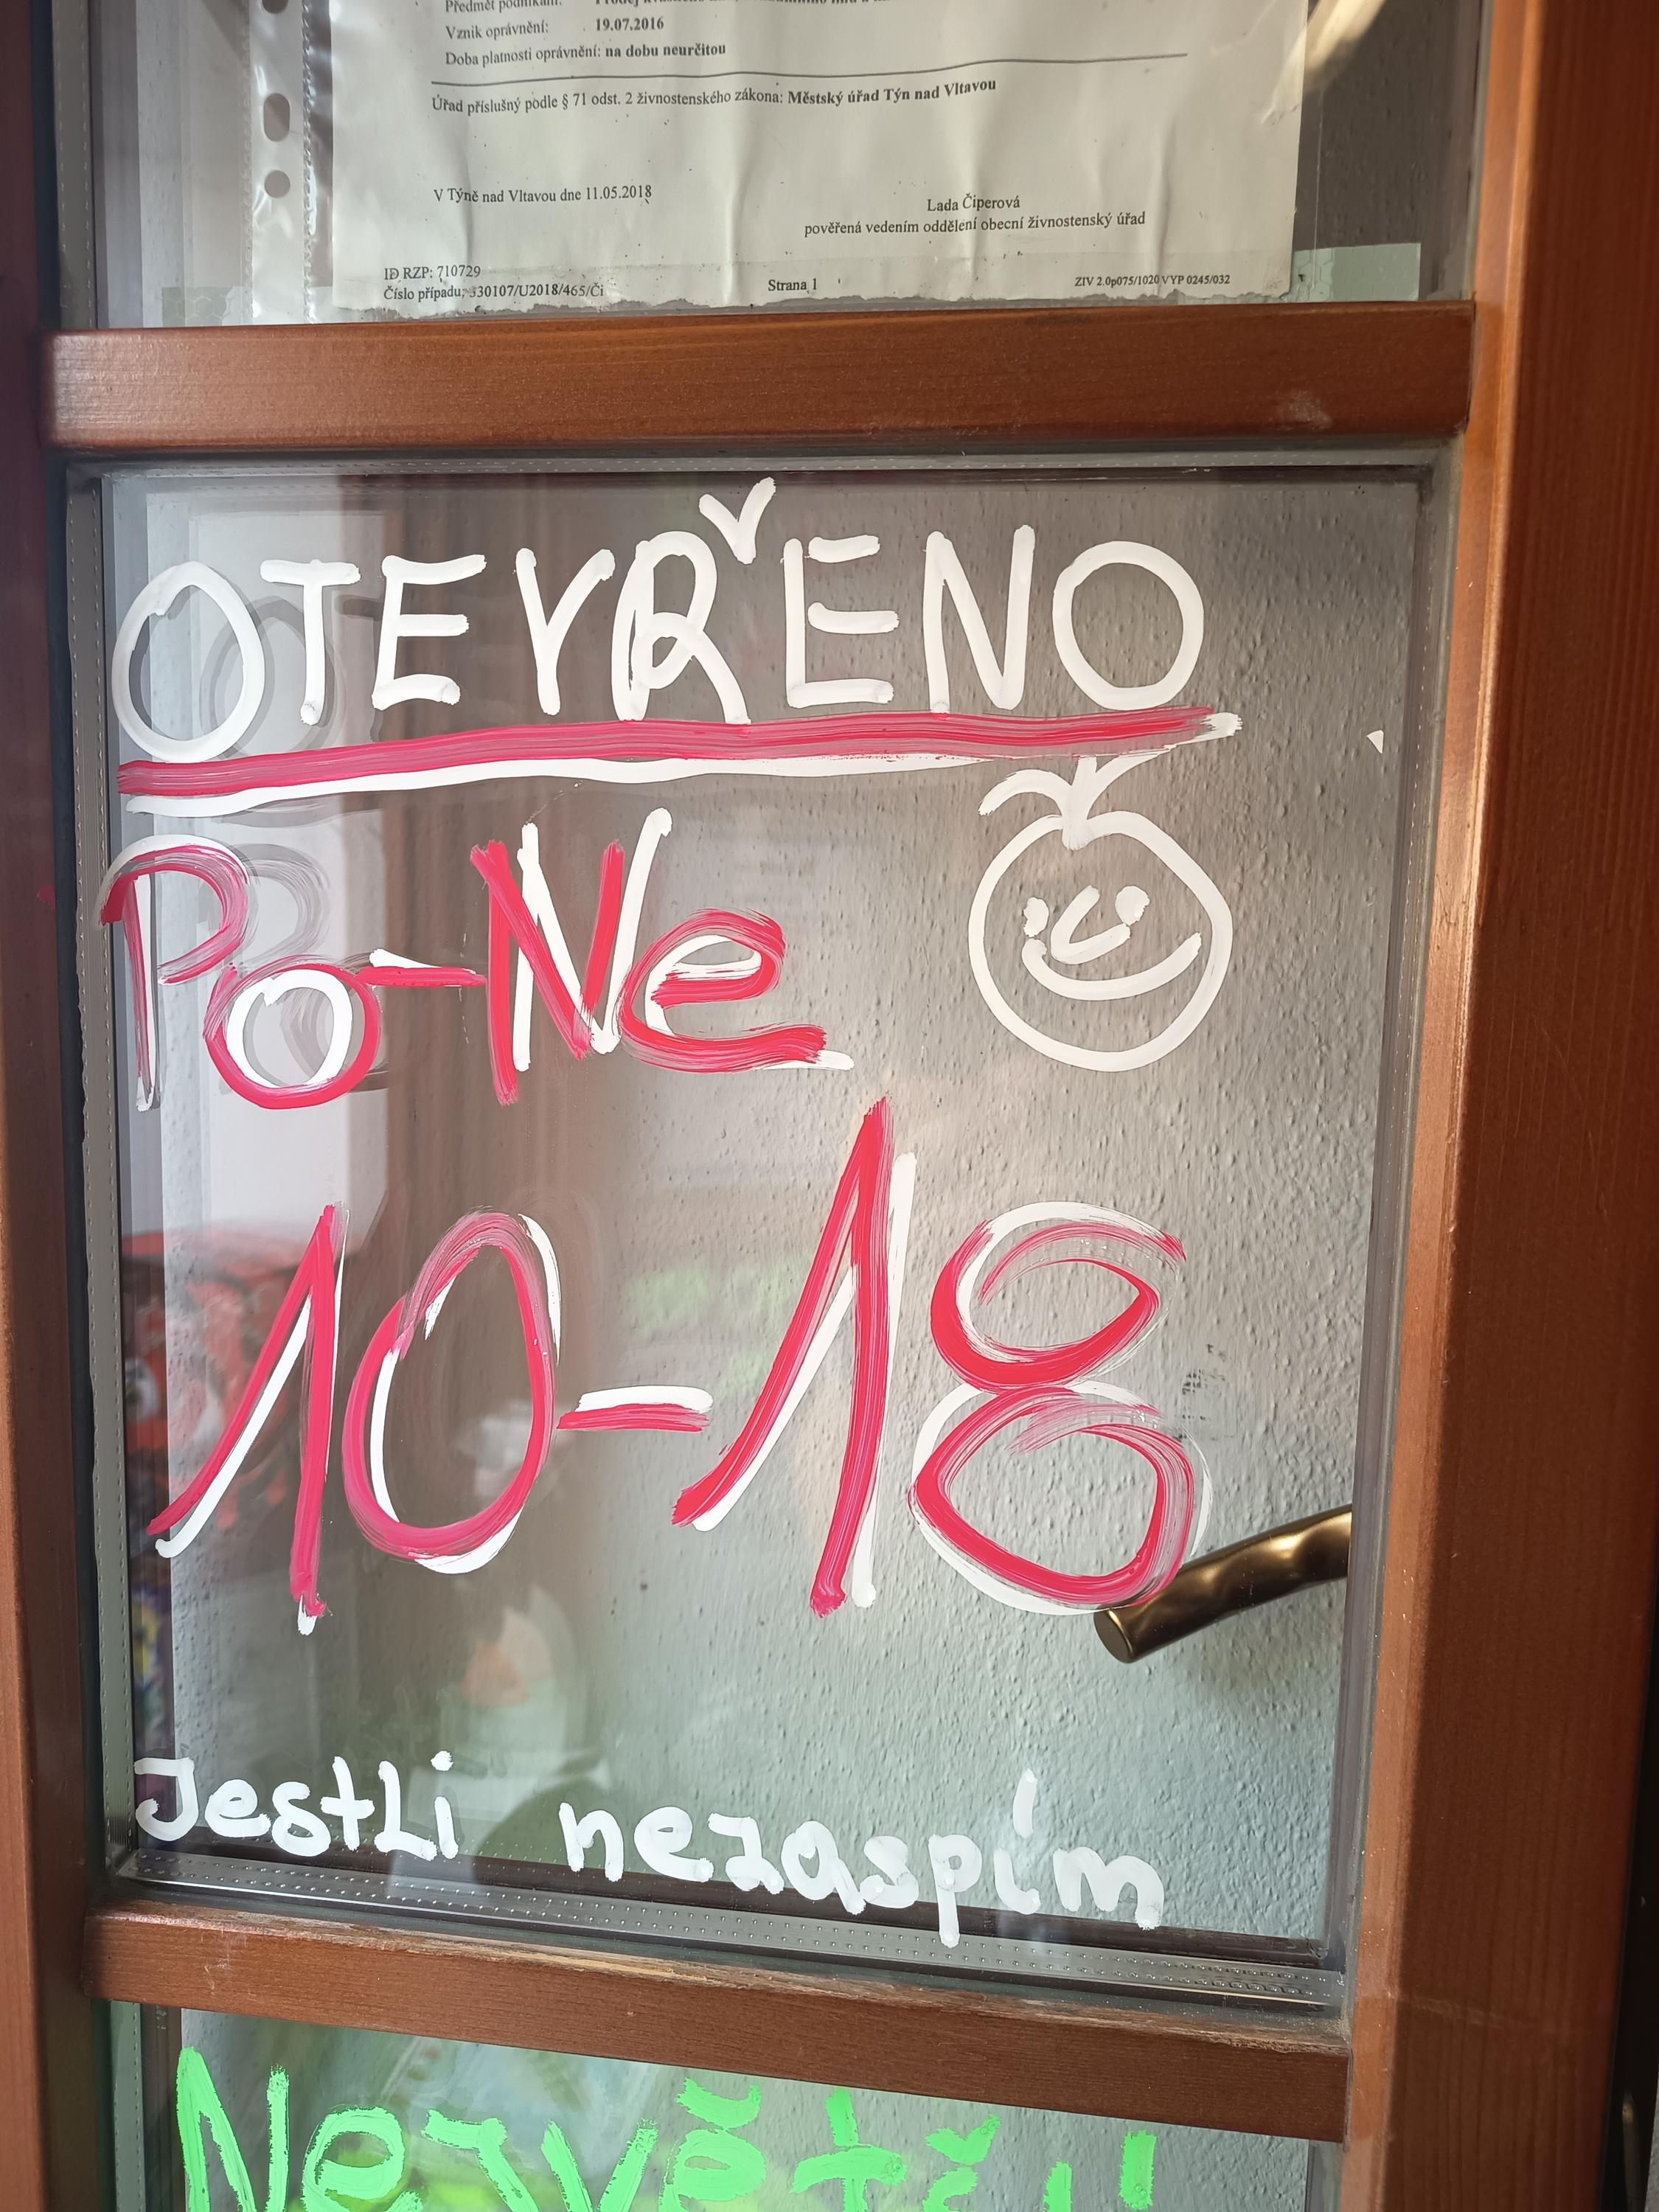 Vznik oprávnění: 19.07.2016
Doba platnosti oprávnění: na dobu neurčitou
Úřad příslušný podle § 71 odst. 2 živnostenského zákona: Městský úřad Týn nad Vltavou
V Týně nad Vltavou dne 11.05.2018
Lada Čiperová
pověřená vedením oddělení obecní živnostenský úřad
ID RZP: 710729
Číslo případu: 330107/U2018/465/Či
Strana 1
ZIV 2.0p075/1020 VYP 0245/032
OTEVŘENO
Po-Ne
10-18
Jestli nezaspím